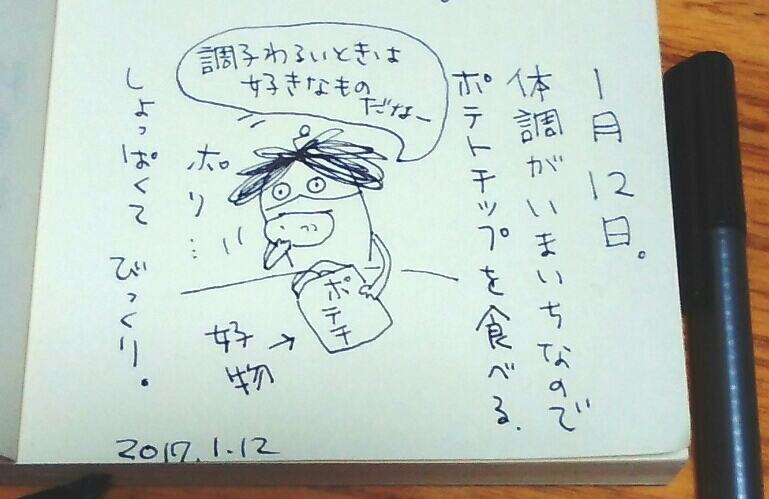 1月12日。
体調がいまいちなので
ポテトチップを食べる.
調子わるいときは
好きなもの
だなー
ポリ…
ポテチ
好物
しょっぱくて びっくり.
2017.1.12